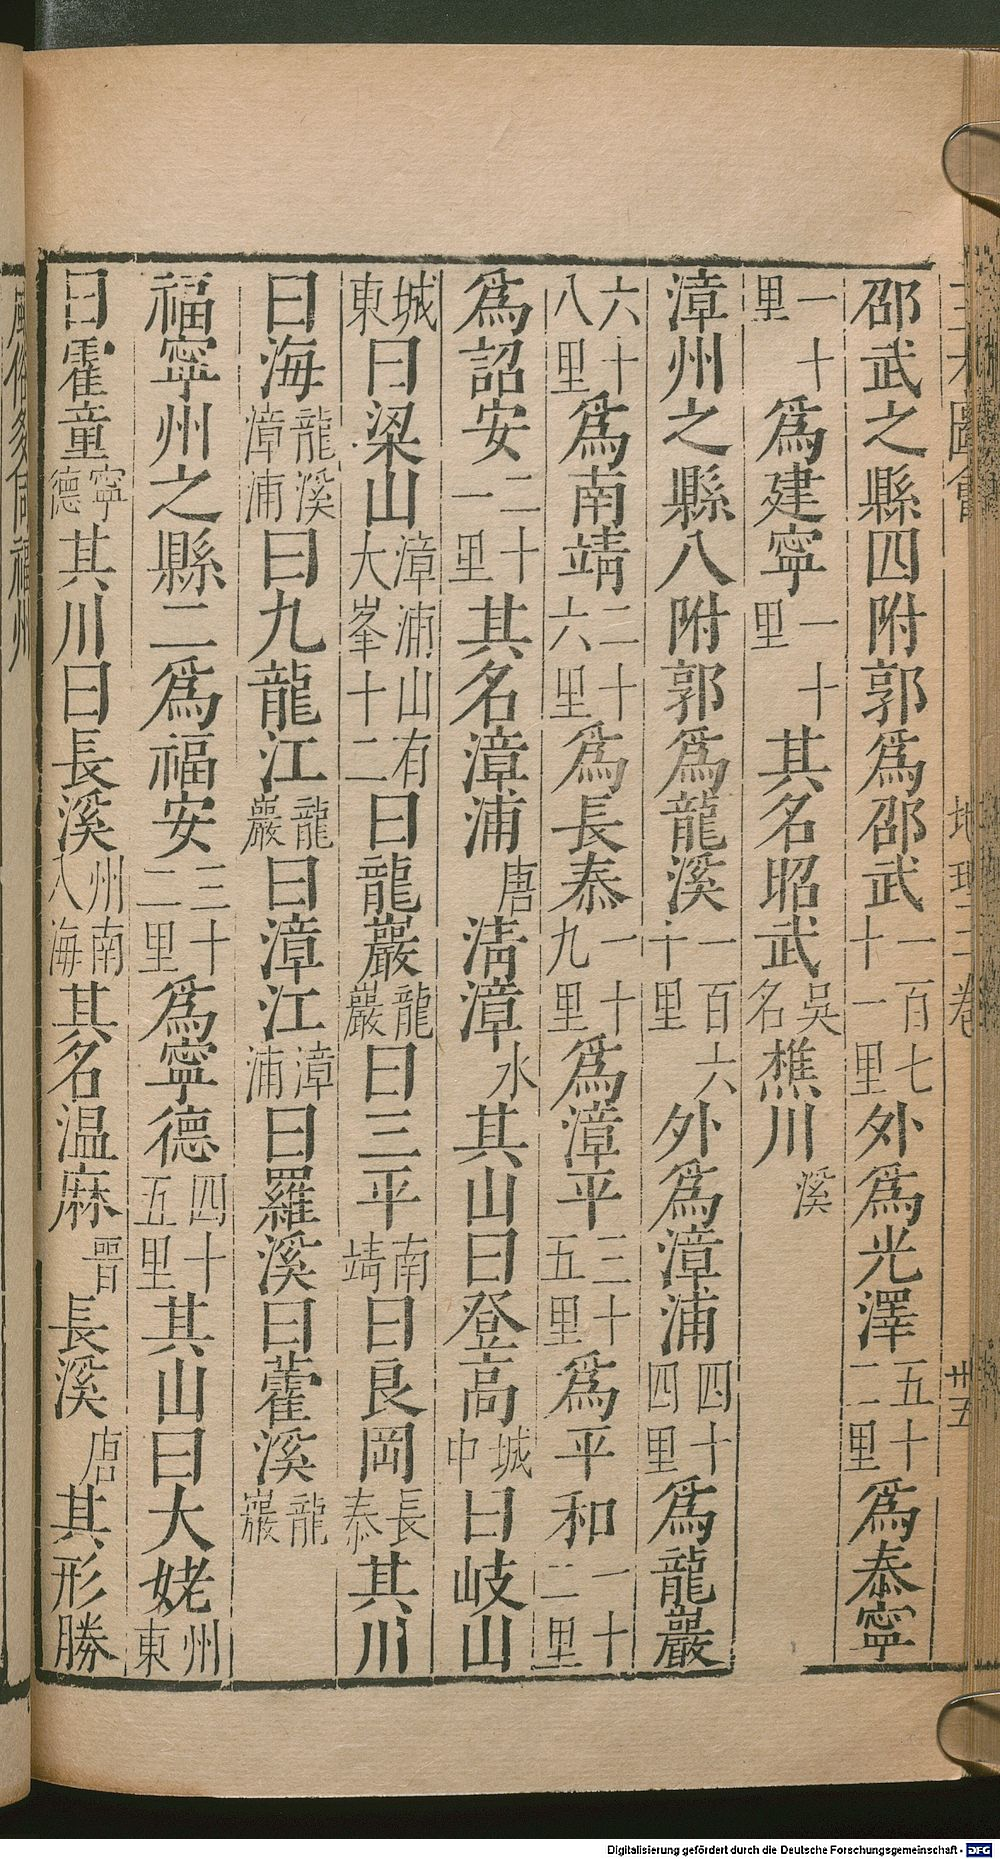 邵武之縣四附郭為邵武一百七十一里外為光澤五十二里為泰寧
一十里為建寧一十里其名昭武吳名樵川溪
漳州之縣八附郭為龍溪一百六十里外為漳浦四十四里為龍巖
六十八里為南靖二十六里為長泰一十九里為漳平三十五里為平和一十二里
為詔安二十一里其名漳浦唐清漳水其山曰登高城中曰岐山
城東曰梁山漳浦山有大峯十二曰龍巖龍巖曰三平南靖曰良岡長泰其川
曰海龍溪漳浦曰九龍江龍巖曰漳江漳浦曰羅溪曰藿溪龍巖
福寧州之縣二為福安三十二里為寧德四十五里其山曰大姥州東
曰霍童寧德其川曰長溪州南入海其名温麻晋長溪唐其形勝
地理三卷
卅五
Digitalisierung gefördert durch die Deutsche Forschungsgemeinschaft - DFG